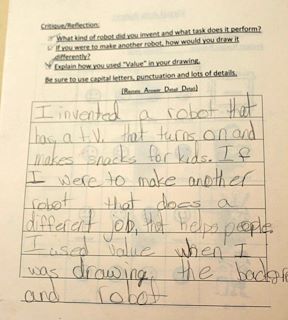 Critique/Reflection:
What kind of robot did you invent and what task does it perform?
If you were to make another robot, how would you draw it
differently?
Explain how you used "Value" in your drawing.
Be sure to use capital letters, punctuation and lots of details.
(Restate Answer Detail Detail)
I invented a robot that
has a t.V. that turns on and
makes snacks for kids. If
I were to make another
robot that does a
different job, that helps people.
I used value when I
was drawing, the backgro
and robot